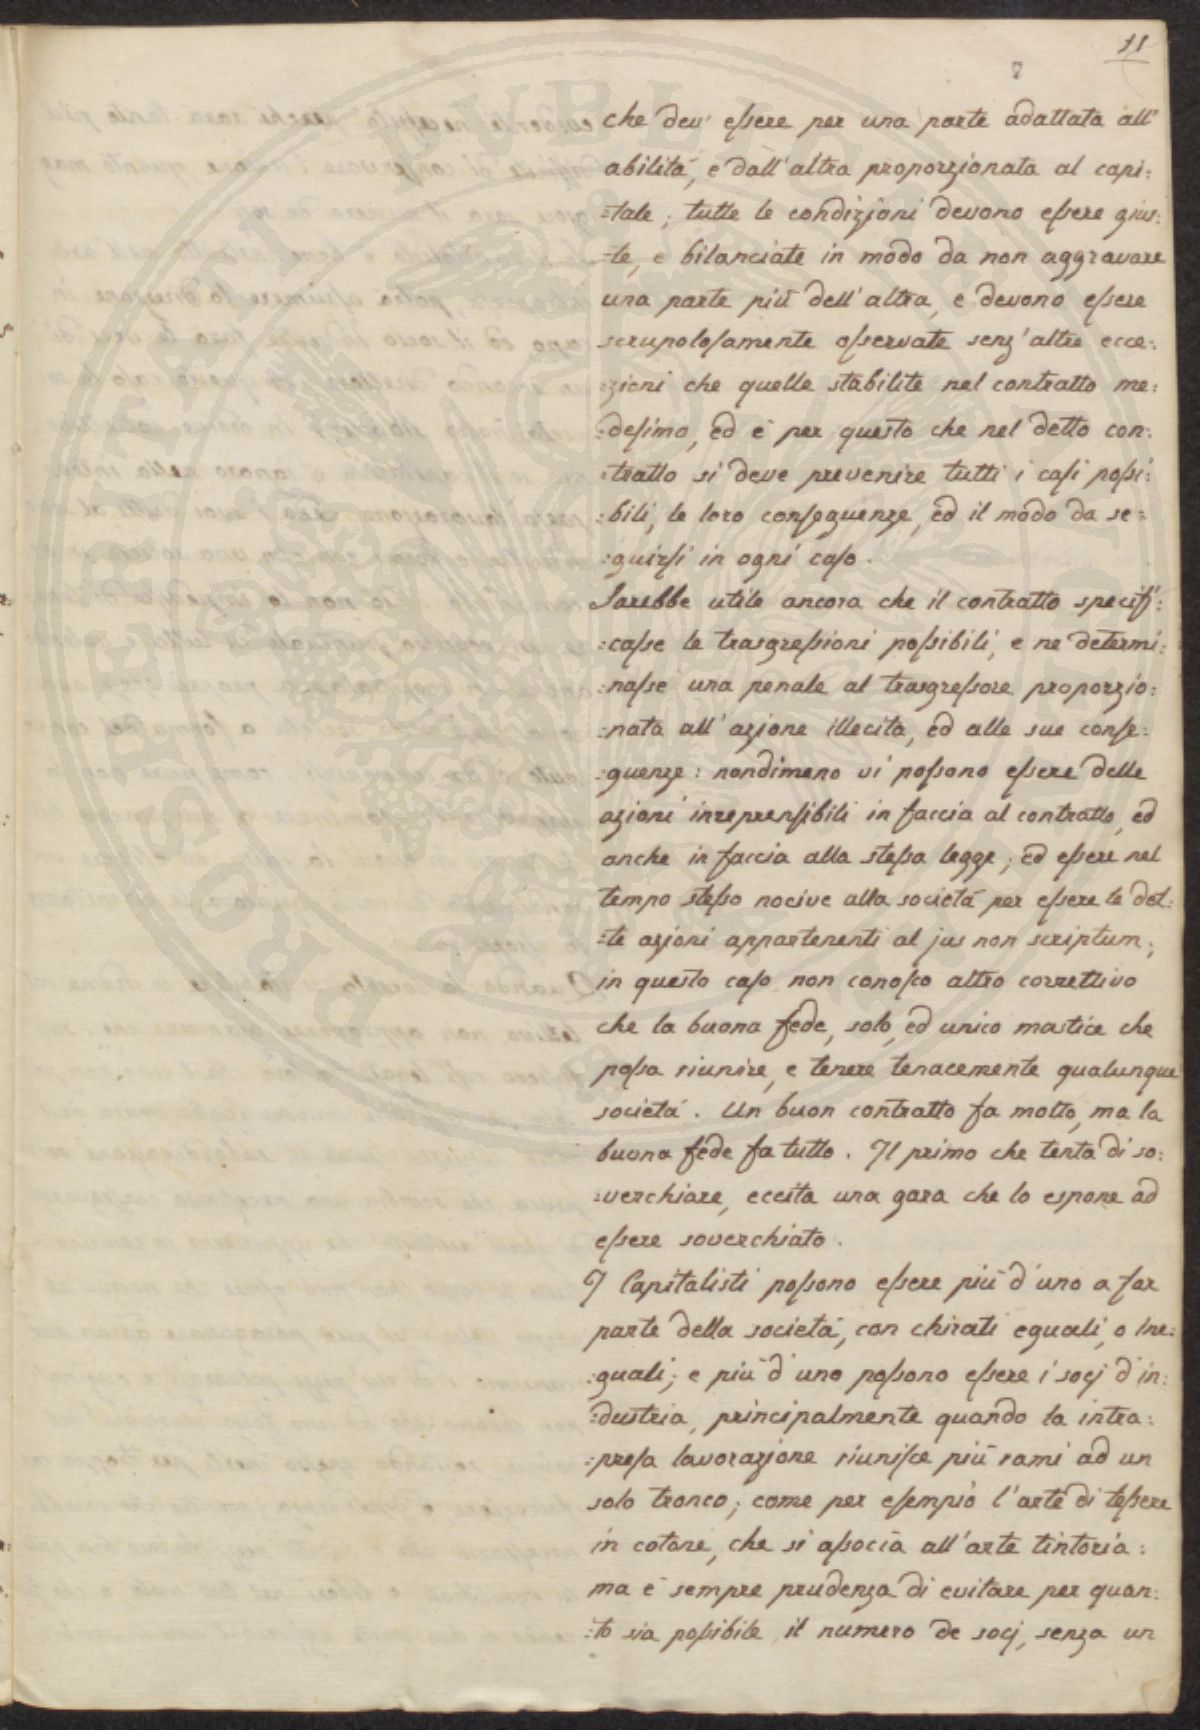 11
7
che dev' essere per una parte adattata all'
abilità, e dall'altra proporzionata al capi:
:tale; tutte le condizioni devono essere gius:
:te, e bilanciate in modo da non aggravare
una parte più dell'altra, e devono essere
scrupolosamente osservate senz'altre ecce:
:zioni che quelle stabilite nel contratto me:
:desimo, ed è per questo che nel detto con:
:tratto si deve prevenire tutti i casi possi:
:bili, le loro conseguenze, ed il modo da se:
:guirsi in ogni caso.
Sarebbe utile ancora che il contratto specifi:
:casse le trasgressioni possibili, e ne determi:
:nasse una penale al trasgressore proporzio:
:nata all'azione illecita, ed alle sue conse:
:guenze: nondimeno vi possono essere delle
azioni inreprensibili in faccia al contratto, ed
anche in faccia alla stessa legge; ed essere nel
tempo stesso nocive alla società per essere le det:
:te azioni appartenenti al jus non scriptum;
in questo caso non conosco altro correttivo
che la buona fede, solo, ed unico mastice che
possa riunire, e tenere tenacemente qualunque
società. Un buon contratto fa molto, ma la
buona fede fa tutto. Il primo che tenta di so:
:verchiare, eccita una gara che lo espone ad
essere soverchiato.
I Capitalisti possono essere più d'uno a far
parte della società, con chirati eguali, o ine:
:guali; e più d'uno possono essere i socj d'in:
:dustria, principalmente quando la intra:
:presa lavorazione riunisce più rami ad un
solo tronco; come per esempio l'arte di tessere
in cotone, che si associa all'arte tintoria:
ma è sempre prudenza di evitare per quan:
:to sia possibile il numero de socj, senza un
PROSPERITATI PUBLICAE